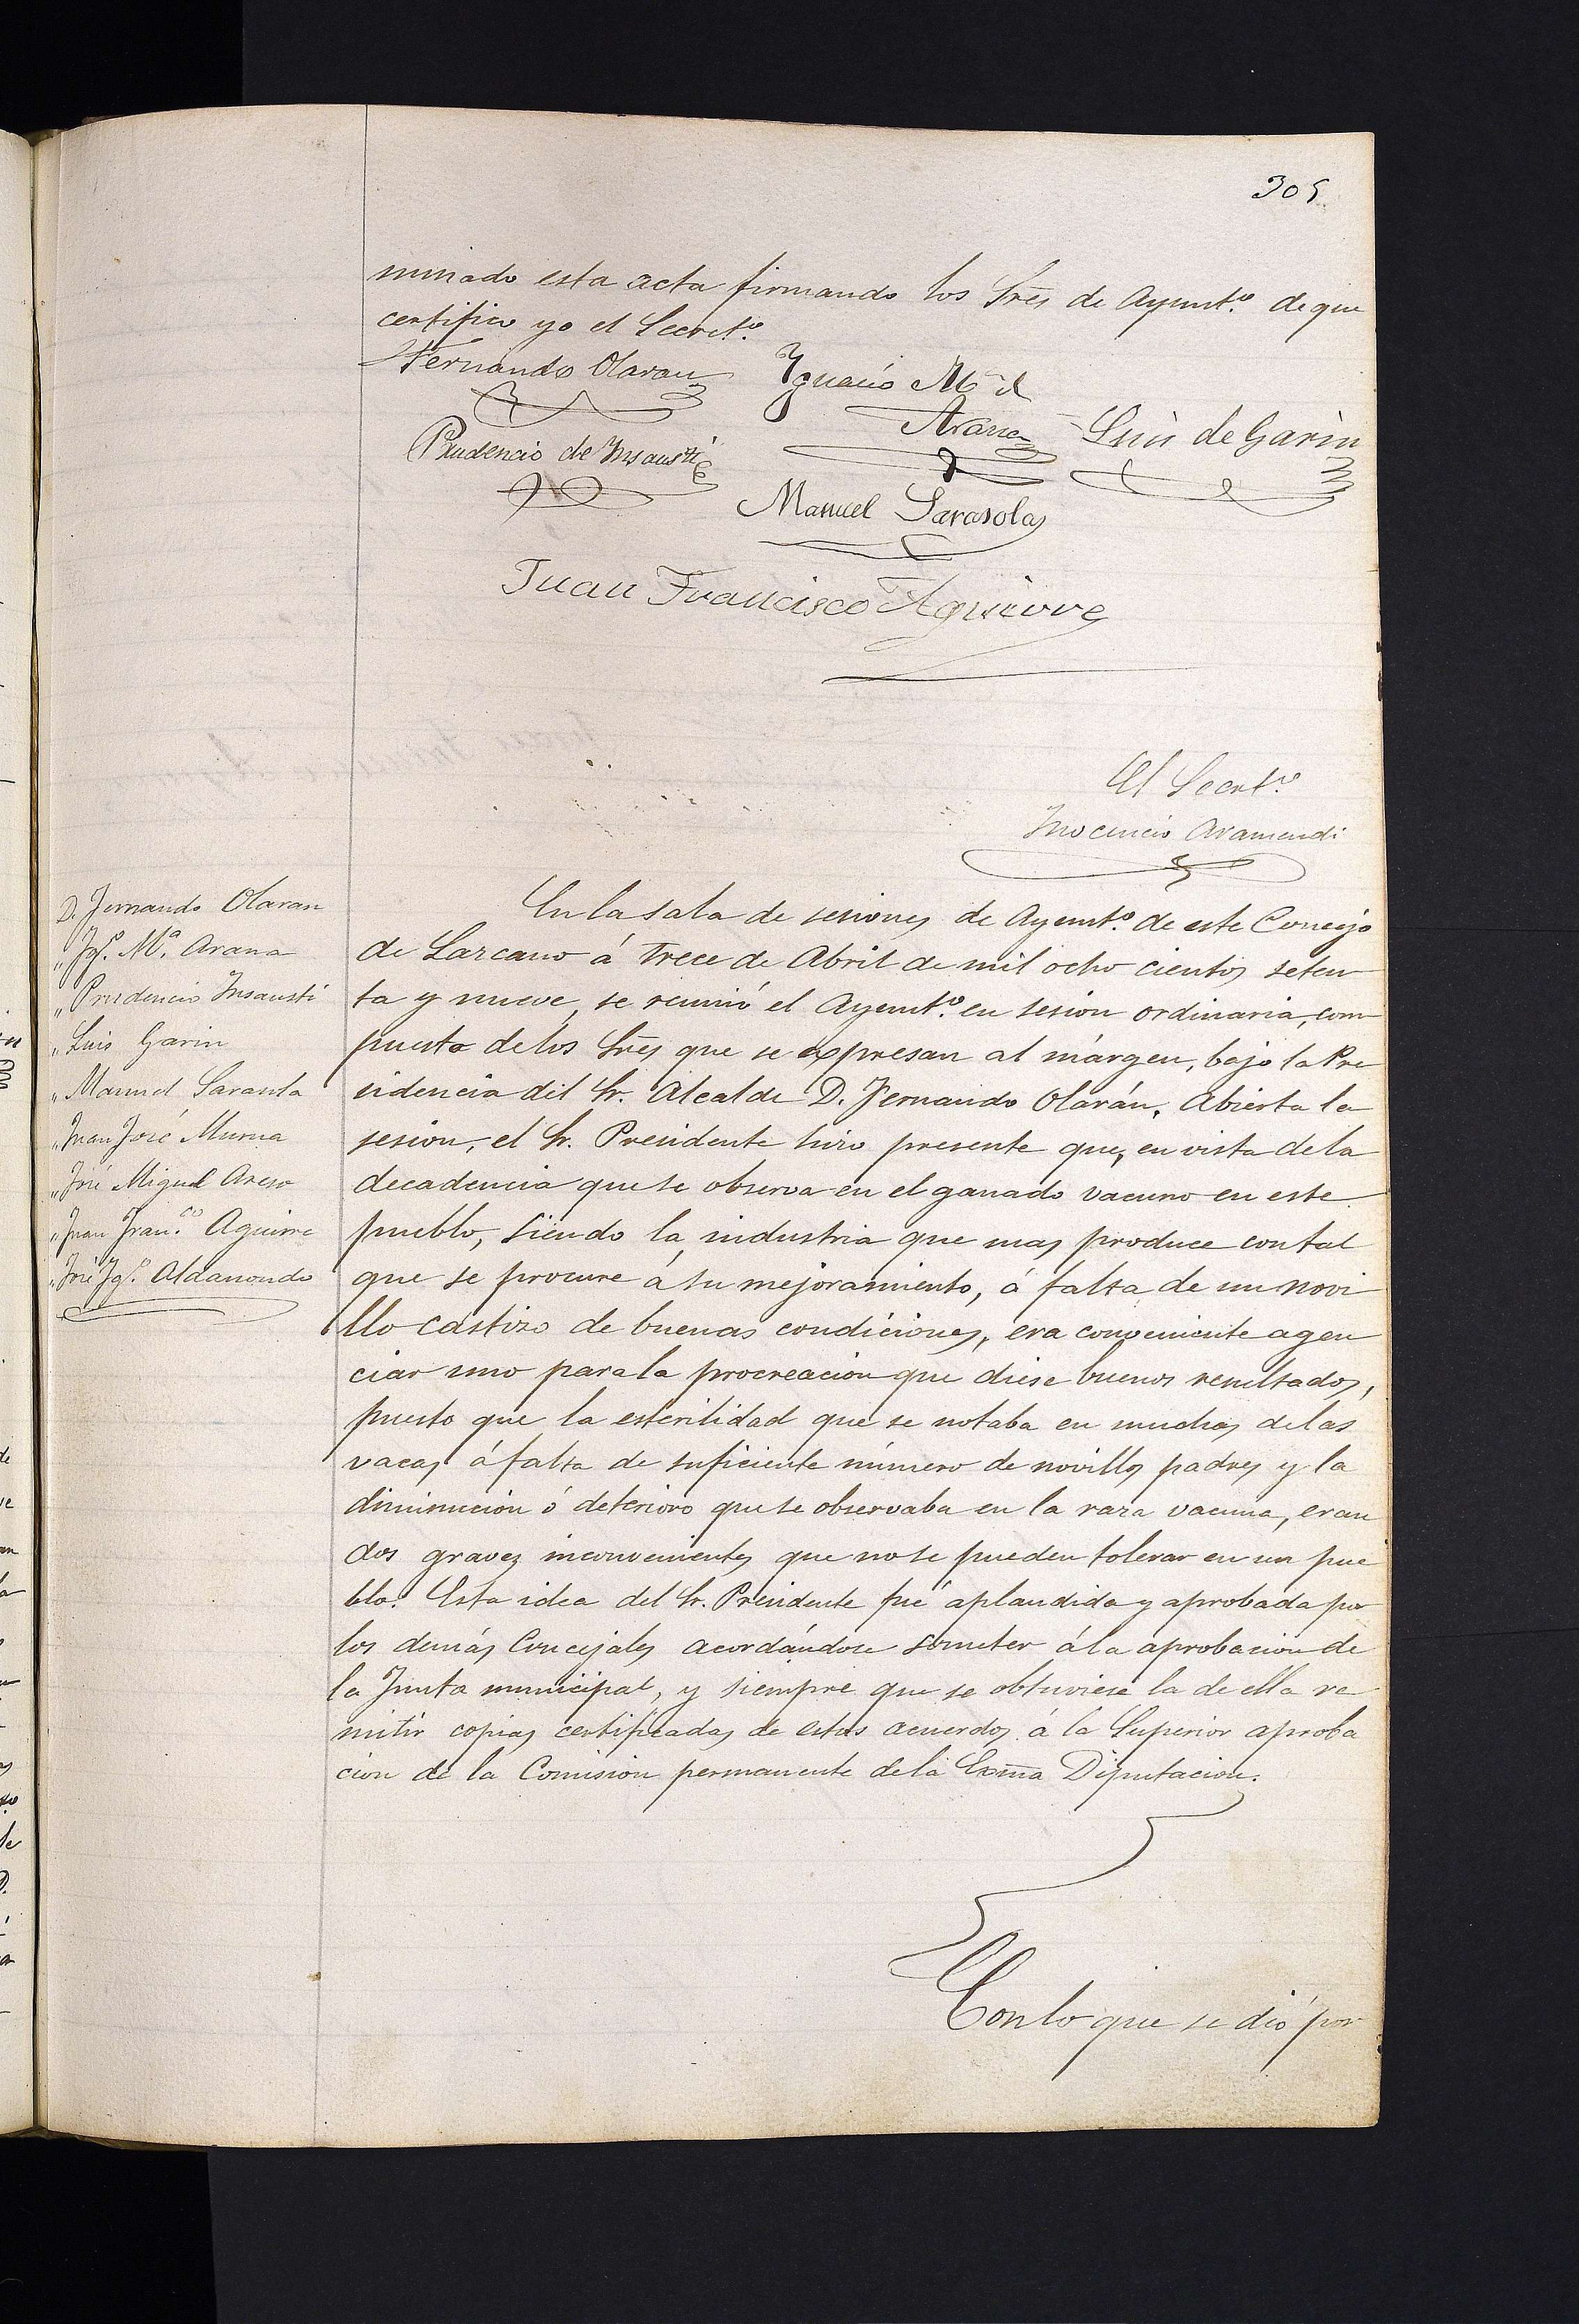 305
minado esta acta firmando los Sres de Ayunt.º de que
certifico yo el Secret.º
Fernando Olaran
Ignacio M.ª d
Arana
Luis de Garin
Prudencio de Insausti
Manuel Sarasola
Juan Francisco Aguirre
El Secret.º
Inocencio Aramendi
D. Fernando Olaran
„ Ig.º M.ª Arana
„ Prudencio Insausti
„ Luis Garin
„ Manuel Sarasola
„ Juan José Murua
„ José Miguel Areso
„ Juan Fran.co Aguirre
„ José Ig.º Aldanondo
En la sala de sesiones de Ayunt.º de este Concejo
de Lazcano á trece de Abril de mil ocho cientos seten
ta y nueve, se reunió el Ayunt.º en sesion ordinaria, com
puesto de los Sres que se expresan al márgen, bajo la Pre
sidencia del Sr. Alcalde D. Fernando Olarán. Abierta la
sesion, el Sr. Presidente hizo presente que, en vista de la
decadencia que se observa en el ganado vacuno en este
pueblo, siendo la industria que mas produce con tal
que se procure á su mejoramiento, á falta de un novi
llo castizo de buenas condiciones, era conveniente agen
ciar uno para la procreacion que diese buenos resultados,
puesto que la esterilidad que se notaba en muchas de las
vacas á falta de suficiente número de novillos padres y la
diminucion ó deterioro que se observaba en la raza vacuna, eran
dos graves inconvenientes que no se pueden tolerar en un pue
blo. Esta idea del Sr. Presidente fué aplaudida y aprobada por
los demás Concejales acordándose someter á la aprobacion de
la Junta municipal, y siempre que se obtuviese la de ella re
mitir copias certificadas de estos acuerdos á la Superior aproba
cion de la Comision permanente de la Exma Diputacion.
Con lo que se dió por